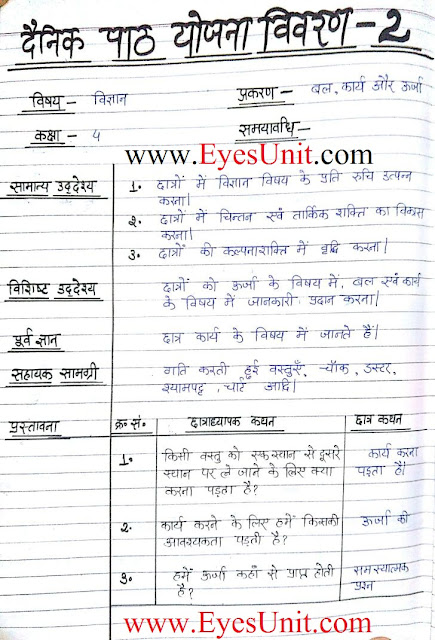 दैनिक पाठ योजना विवरण - 2
विषय - विज्ञान
प्रकरण - बल, कार्य और ऊर्जा
कक्षा - 5
समयावधि -
www.EyesUnit.com
सामान्य उद्देश्य
१. छात्रों में विज्ञान विषय के प्रति रुचि उत्पन्न
करना।
२. छात्रों में चिन्तन एवं तार्किक शक्ति का विकास
करना।
३. छात्रों की कल्पनाशक्ति में वृद्धि करना।
विशिष्ट उद्देश्य
छात्रों को ऊर्जा के विषय में, बल एवं कार्य
के विषय में जानकारी प्रदान करना।
पूर्व ज्ञान
छात्र कार्य के विषय में जानते हैं।
सहायक सामग्री
गति करती हुई वस्तुएँ, चॉक, डस्टर,
श्यामपट्ट, चार्ट आदि।
प्रस्तावना
क्र० सं०
छात्राध्यापक कथन
छात्र कथन
१.
किसी वस्तु को एक स्थान से दूसरे
स्थान पर ले जाने के लिए क्या
करना पड़ता है?
कार्य करना
पड़ता है।
२.
कार्य करने के लिए हमें किसकी
आवश्यकता पड़ती है?
ऊर्जा की
३.
हमें ऊर्जा कहाँ से प्राप्त होती
है?
समस्यात्मक
प्रश्न
www.EyesUnit.com